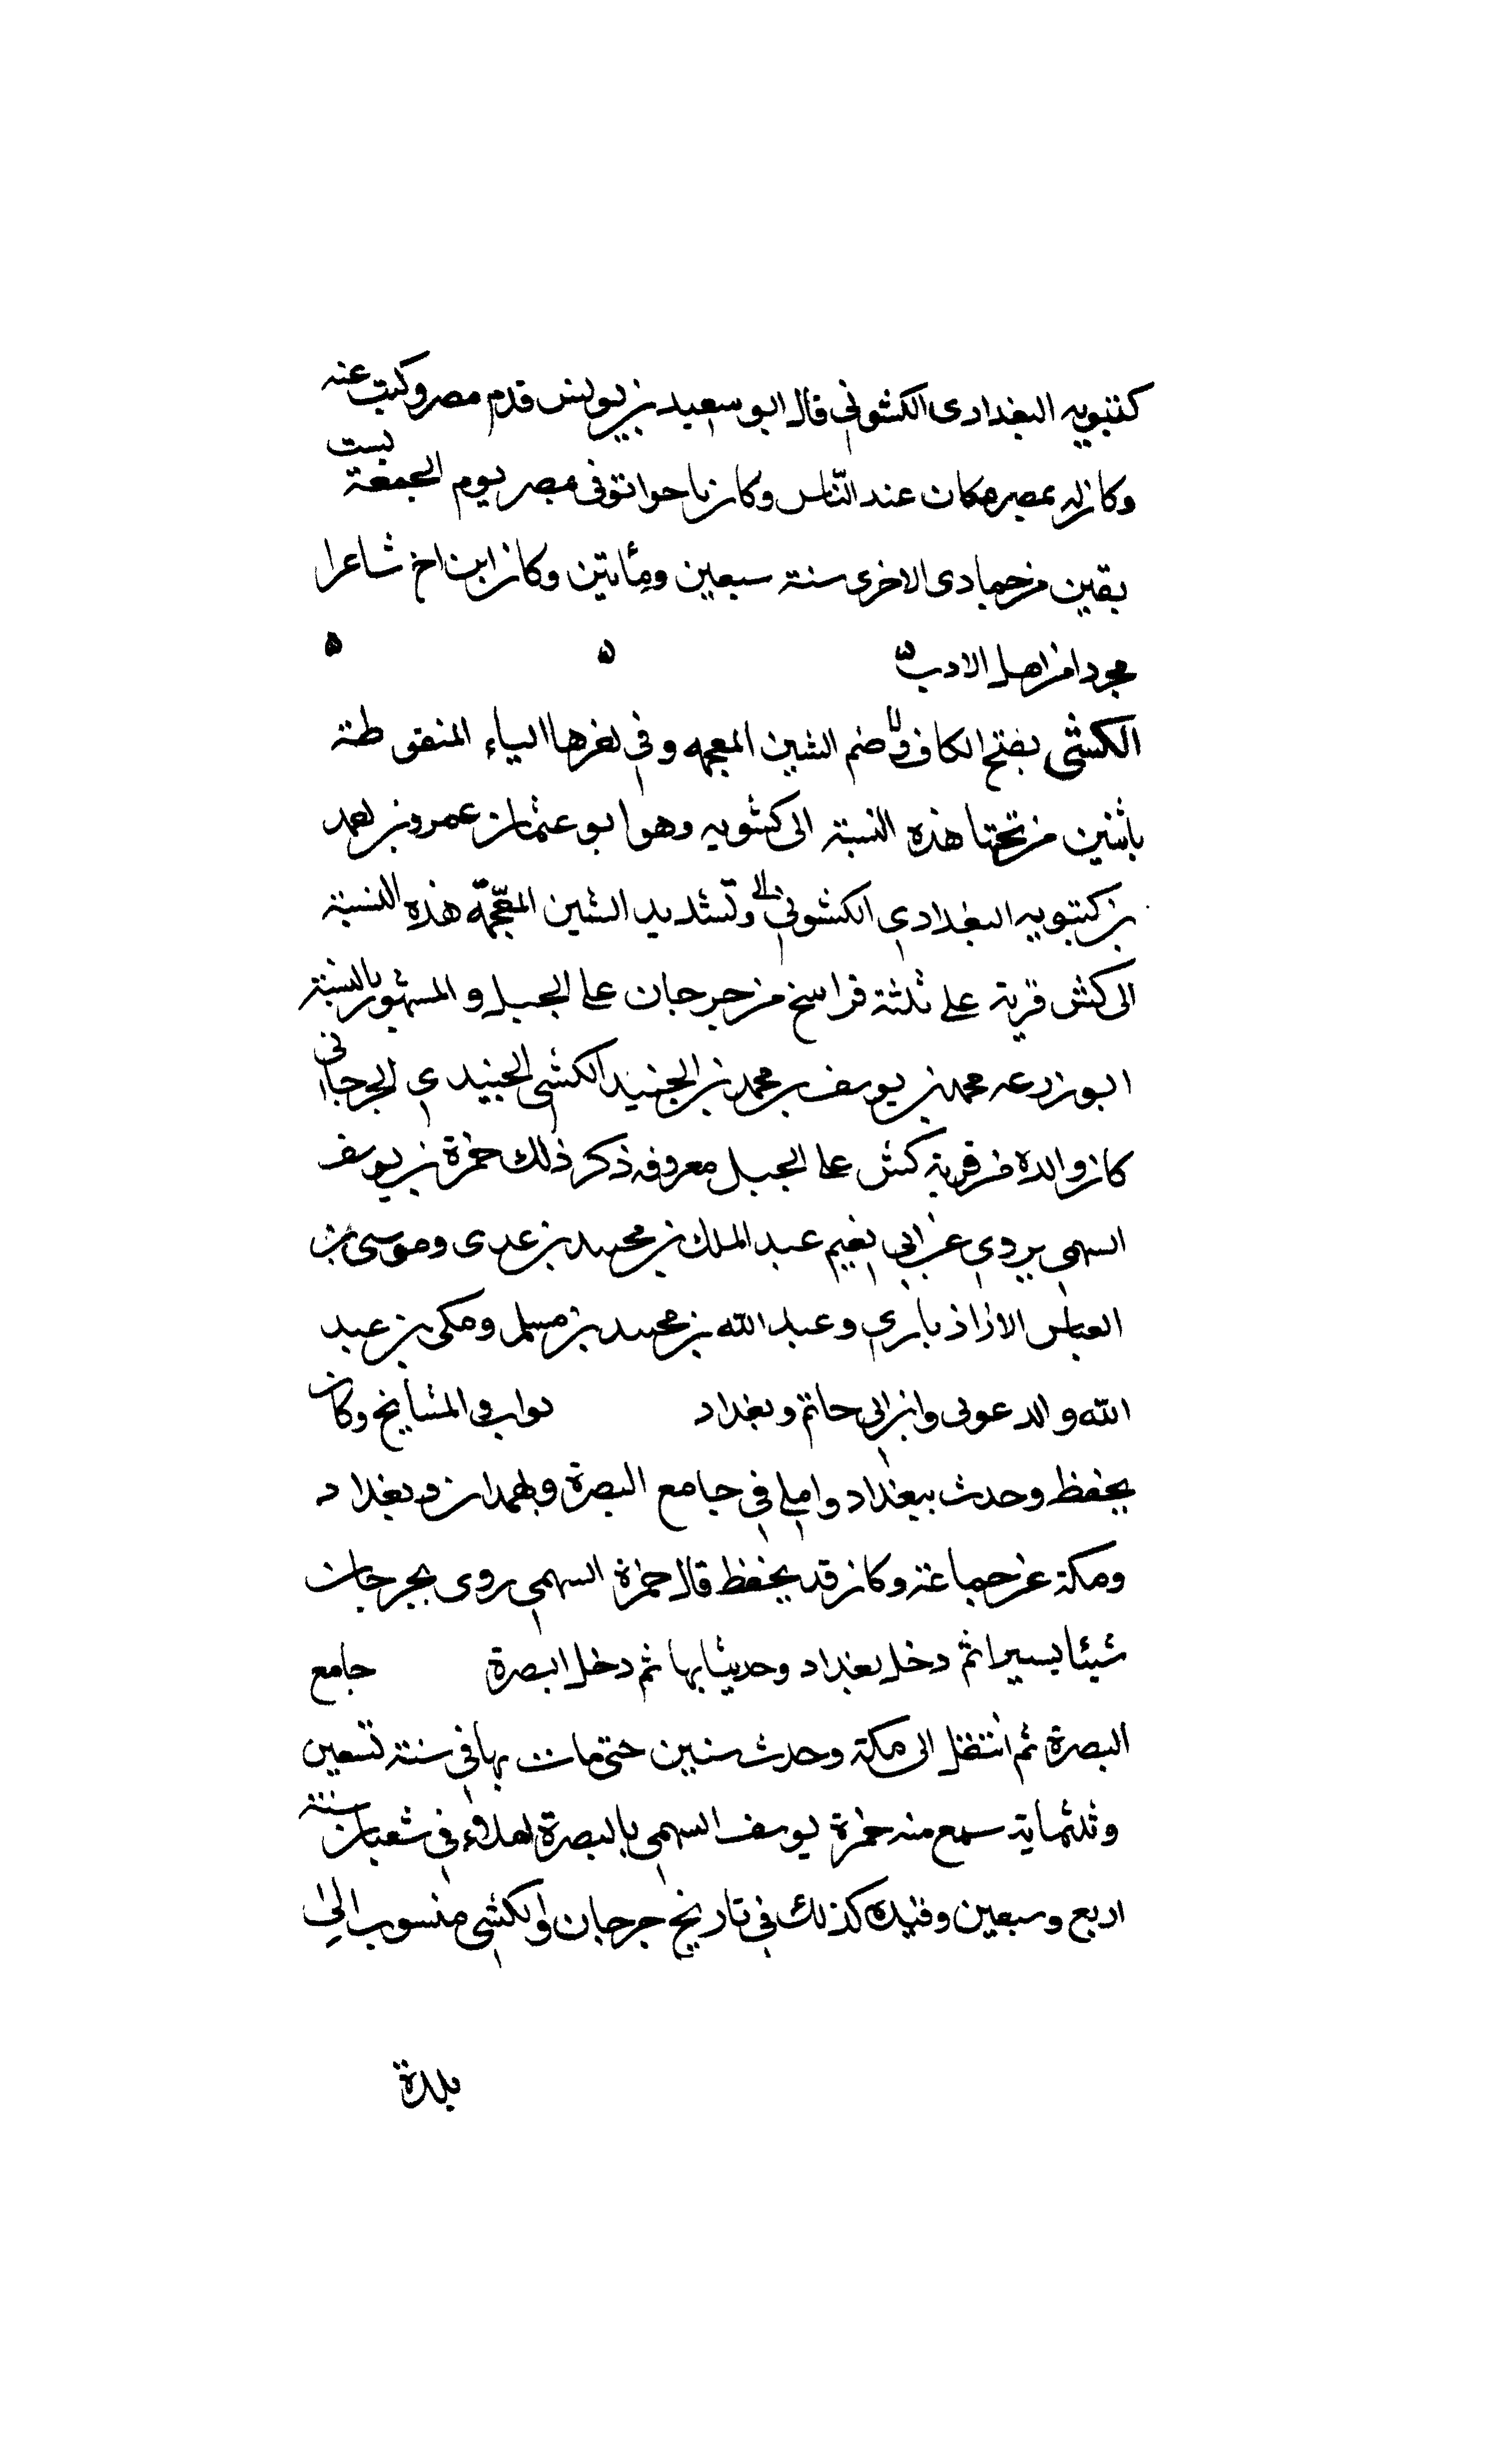 كنتبويه البغدادى الكشونى قال ابو سعيد بن يونس قدم مصر وكتب عنه
وكان له بمصر مكان عند الناس وكان ناحوا توفى مصر يوم الجمعة لست
بقين من جمادى الاخرى سنة سبعين ومأتين وكان ابن اخ شاعرا
مجودا من اهل الادب
الكشى بفتح الكاف وضم الشين المعجمه وفى اخرها الياء المنقوطة
باثنين من تحتها هذه النسبة الى كشويه وهو ابو عثمان عمرو بن احمد
بن كتبويه البغدادي الكشونى وتشديد الشين المعجمة هذه النسبة
الى كش قرية على ثلثة فراسخ من جرجان على الجبل والمشهور بالنسبة
ابو زرعه محمد بن يوسف بن محمد بن الجنيد الكشى الجنيدي الجرجانى
كان والده من قرية كش على الجبل معروفه ذكر ذلك حمزة بن يوسف
السهمى يروي عن ابى نعيم عبد الملك بن محمد بن عدى وموسى بن
العباس الازاذيارى وعبد الله بن محمد بن مسلم ومكى بن عبد
الله والدعولى وابن ابى حاتم وبغداد المشايخ وكان
يحفظ وحدث ببغداد واملى فى جامع البصرة وبهمدان وبغداد
ومكة عن جماعة وكان قد يحفظ قال حمزة السهمى روى بجرجان
شيئا يسيرا ثم دخل بغداد وحديثا بها ثم دخل البصرة جامع
البصرة ثم انتقل الى مكة وحدث سنين حتى مات بها فى سنة تسعين
وثلثماية سمع منه حمزة يوسف السهمى بالبصرة املاء فى شعبان سنة
اربع وسبعين وقيده كذلك فى تاريخ جرجان والكشى منسوب الى
بلدة